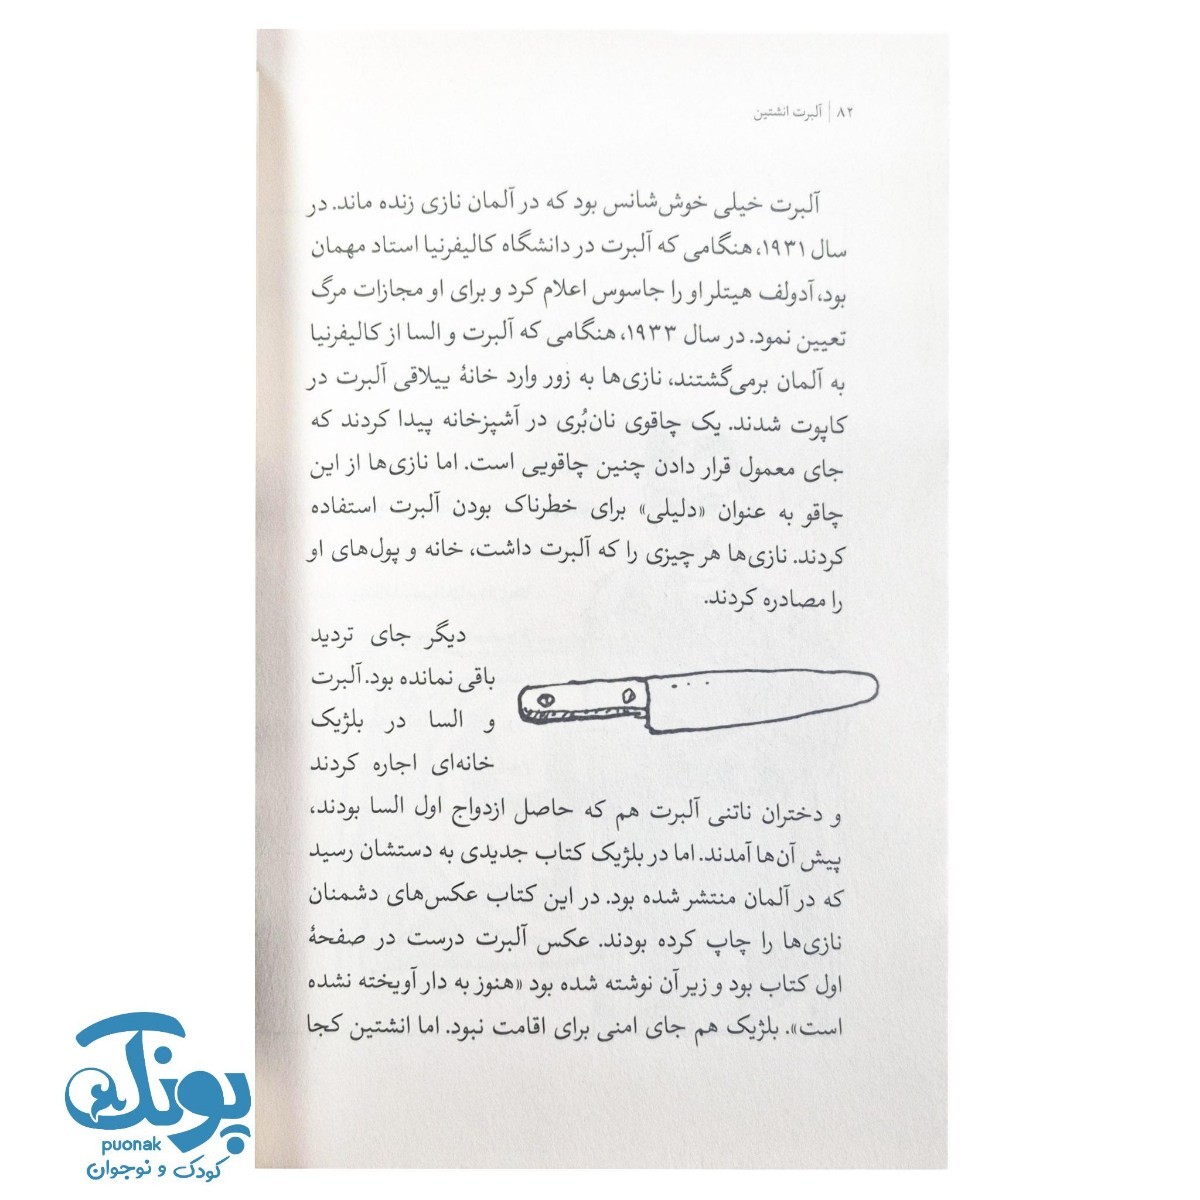 ۸۲ | آلبرت انشتین
آلبرت خیلی خوش‌شانس بود که در آلمان نازی زنده ماند. در
سال ۱۹۳۱، هنگامی که آلبرت در دانشگاه کالیفرنیا استاد مهمان
بود، آدولف هیتلر او را جاسوس اعلام کرد و برای او مجازات مرگ
تعیین نمود. در سال ۱۹۳۳، هنگامی که آلبرت و السا از کالیفرنیا
به آلمان برمی‌گشتند، نازی‌ها به زور وارد خانهٔ ییلاقی آلبرت در
کاپوت شدند. یک چاقوی نان‌بُری در آشپزخانه پیدا کردند که
جای معمول قرار دادن چنین چاقویی است. اما نازی‌ها از این
چاقو به عنوان «دلیلی» برای خطرناک بودن آلبرت استفاده
کردند. نازی‌ها هر چیزی را که آلبرت داشت، خانه و پول‌های او
را مصادره کردند.
دیگر جای تردید
باقی نمانده بود. آلبرت
و السا در بلژیک
خانه‌ای اجاره کردند
و دختران ناتنی آلبرت هم که حاصل ازدواج اول السا بودند،
پیش آن‌ها آمدند. اما در بلژیک کتاب جدیدی به دستشان رسید
که در آلمان منتشر شده بود. در این کتاب عکس‌های دشمنان
نازی‌ها را چاپ کرده بودند. عکس آلبرت درست در صفحهٔ
اول کتاب بود و زیر آن نوشته شده بود «هنوز به دار آویخته نشده
است». بلژیک هم جای امنی برای اقامت نبود. اما انشتین کجا
پونک
puonak
کودک و نوجوان